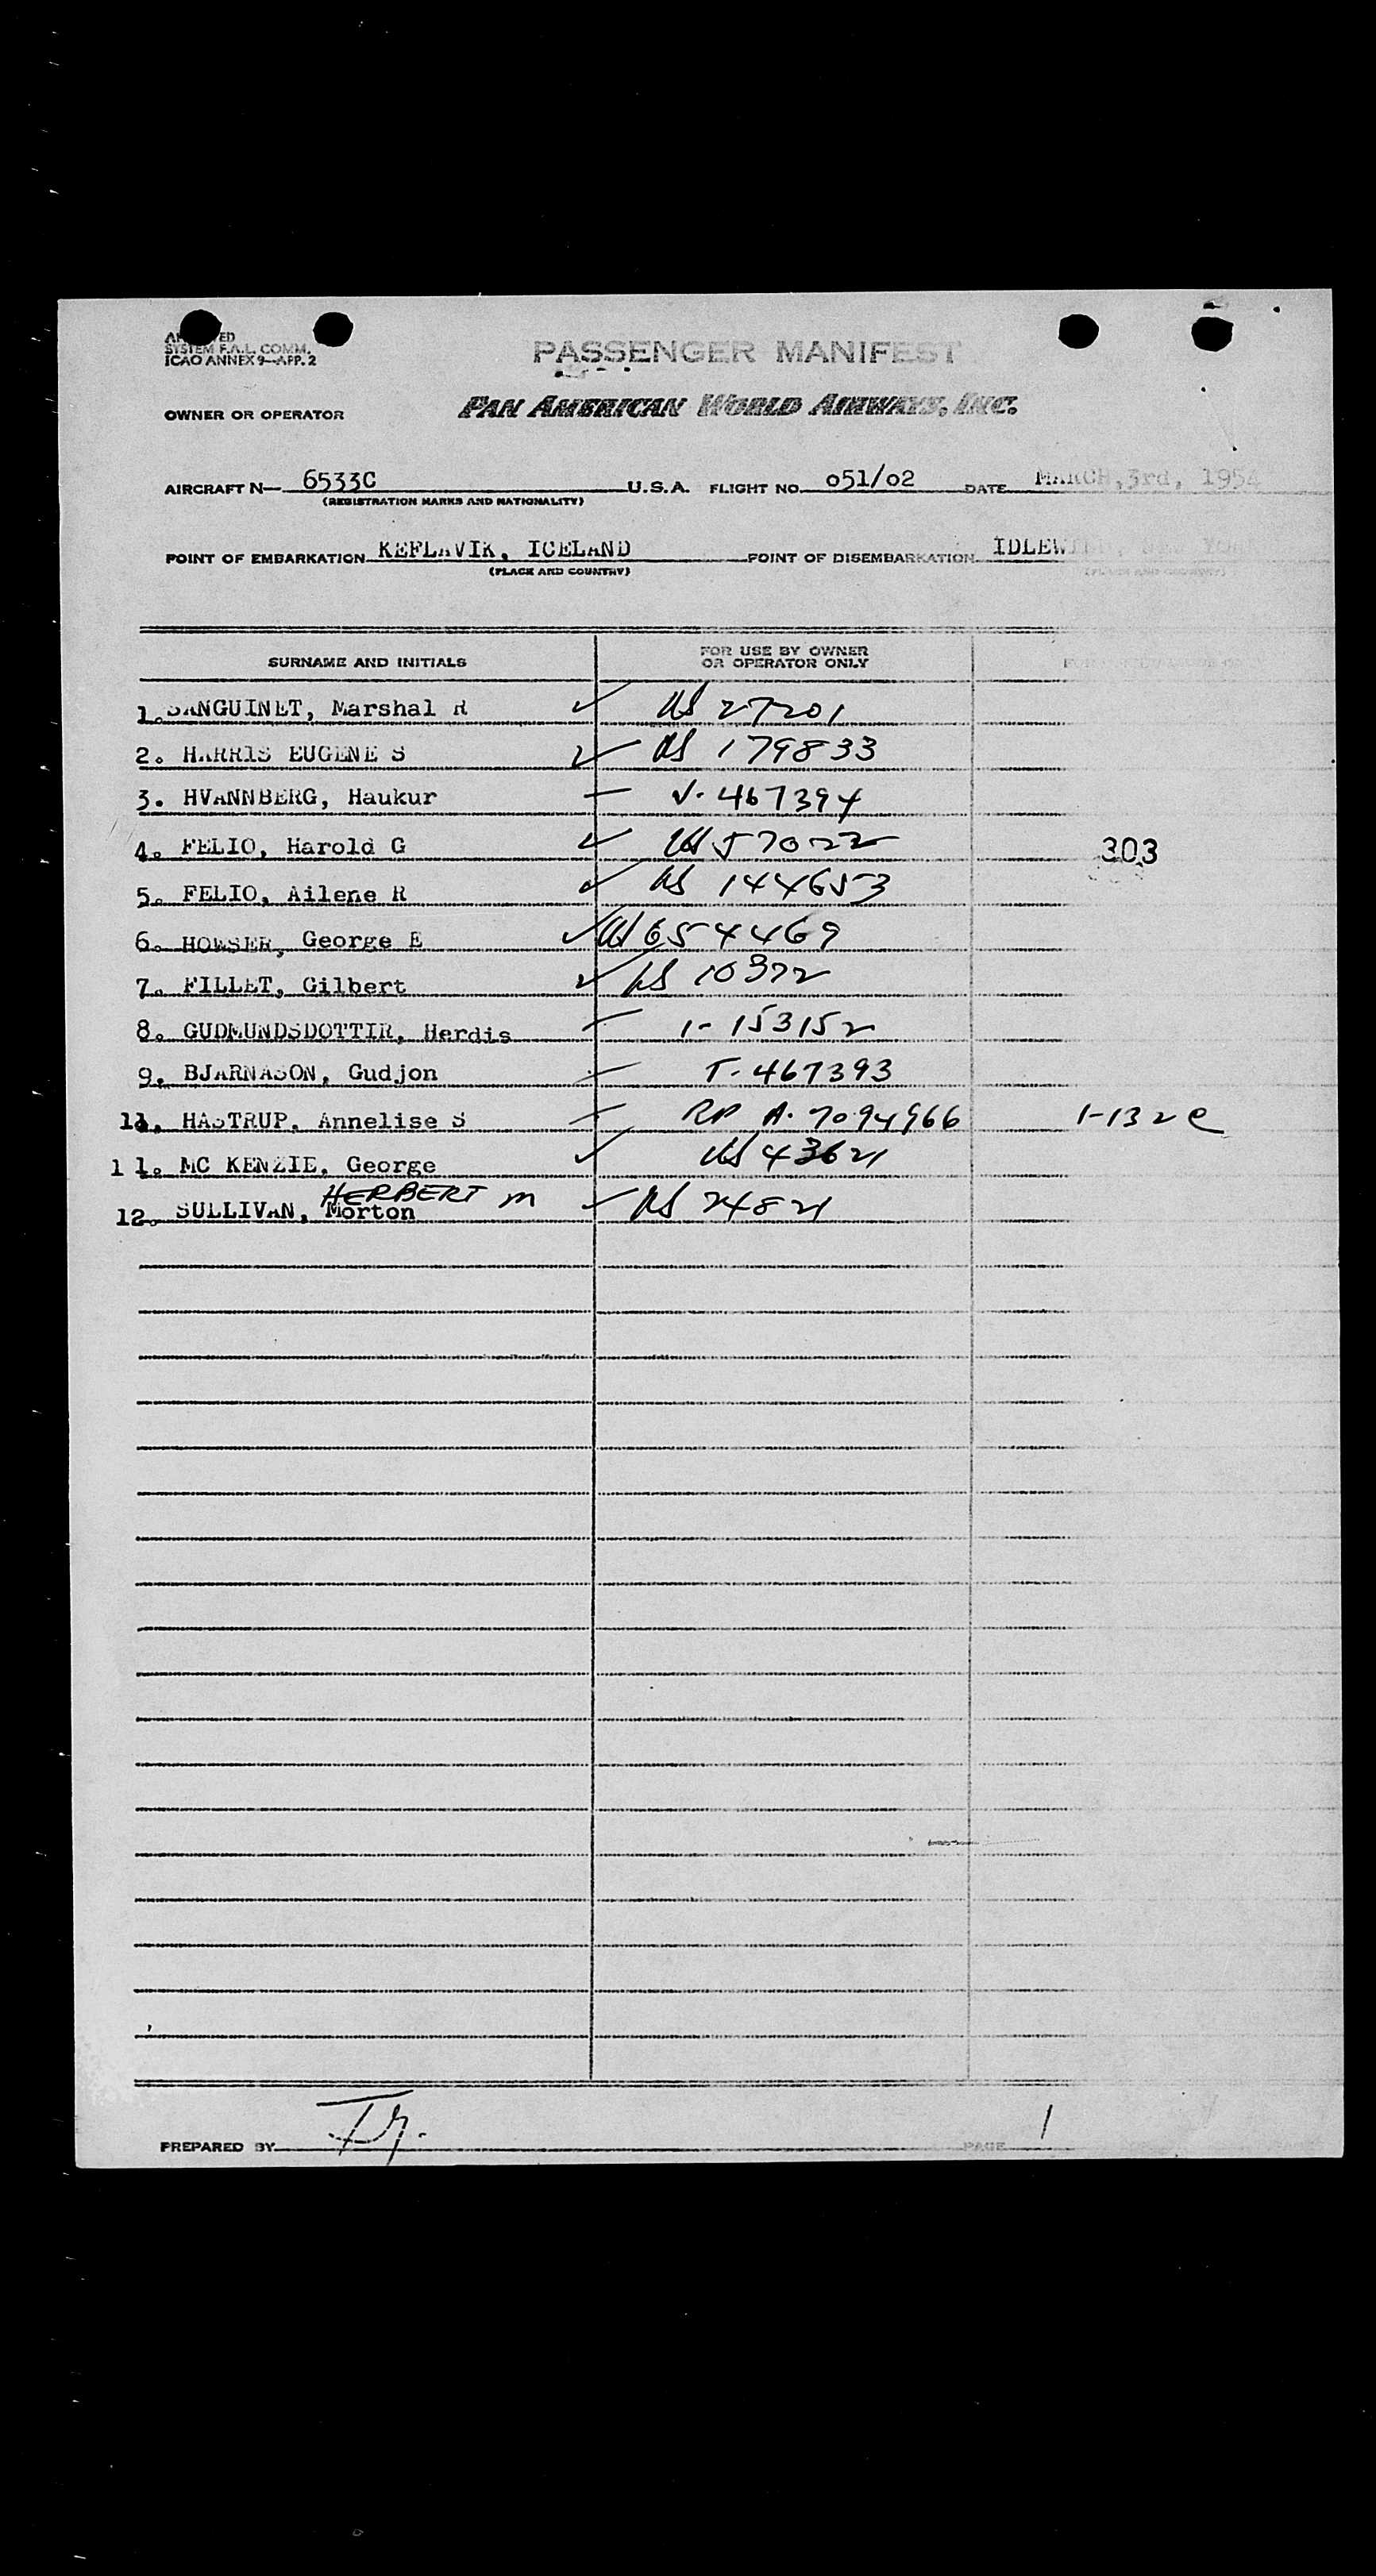 SYSTEM F.A.L. COMM.
ICAO ANNEX 9—APP. 2
PASSENGER MANIFEST
OWNER OR OPERATOR PAN AMERICAN WORLD AIRWAYS, INC.
AIRCRAFT N— 6533C U.S.A. FLIGHT NO. 051/02 DATE MARCH,3rd, 1954
(REGISTRATION MARKS AND NATIONALITY)
POINT OF EMBARKATION KEFLAVIK, ICELAND POINT OF DISEMBARKATION
(PLACE AND COUNTRY) (PLACE AND COUNTRY)
SURNAME AND INITIALS FOR USE BY OWNER OR OPERATOR ONLY
1. SANGUINET, Marshal R ✓ US 27201
2. HARRIS EUGENE S ✓ US 179833
3. HVANNBERG, Haukur — V. 467394
4. FELIO, Harold G ✓ US 57022 303
5. FELIO, Ailene R ✓ US 144653
6. HOWSER, George E ✓ US 654469
7. FILLET, Gilbert ✓ US 10372
8. GUDMUNDSDOTTIR, Herdis — 1- 153152
9. BJARNASON, Gudjon — T. 467393
HASTRUP, Annelise S — RP A. 7094966 1-132e
1 1. MC KENZIE, George ✓ US 43621
HERBERT M
12. SULLIVAN, Morton ✓ US 24821
PREPARED BY PAGE 1